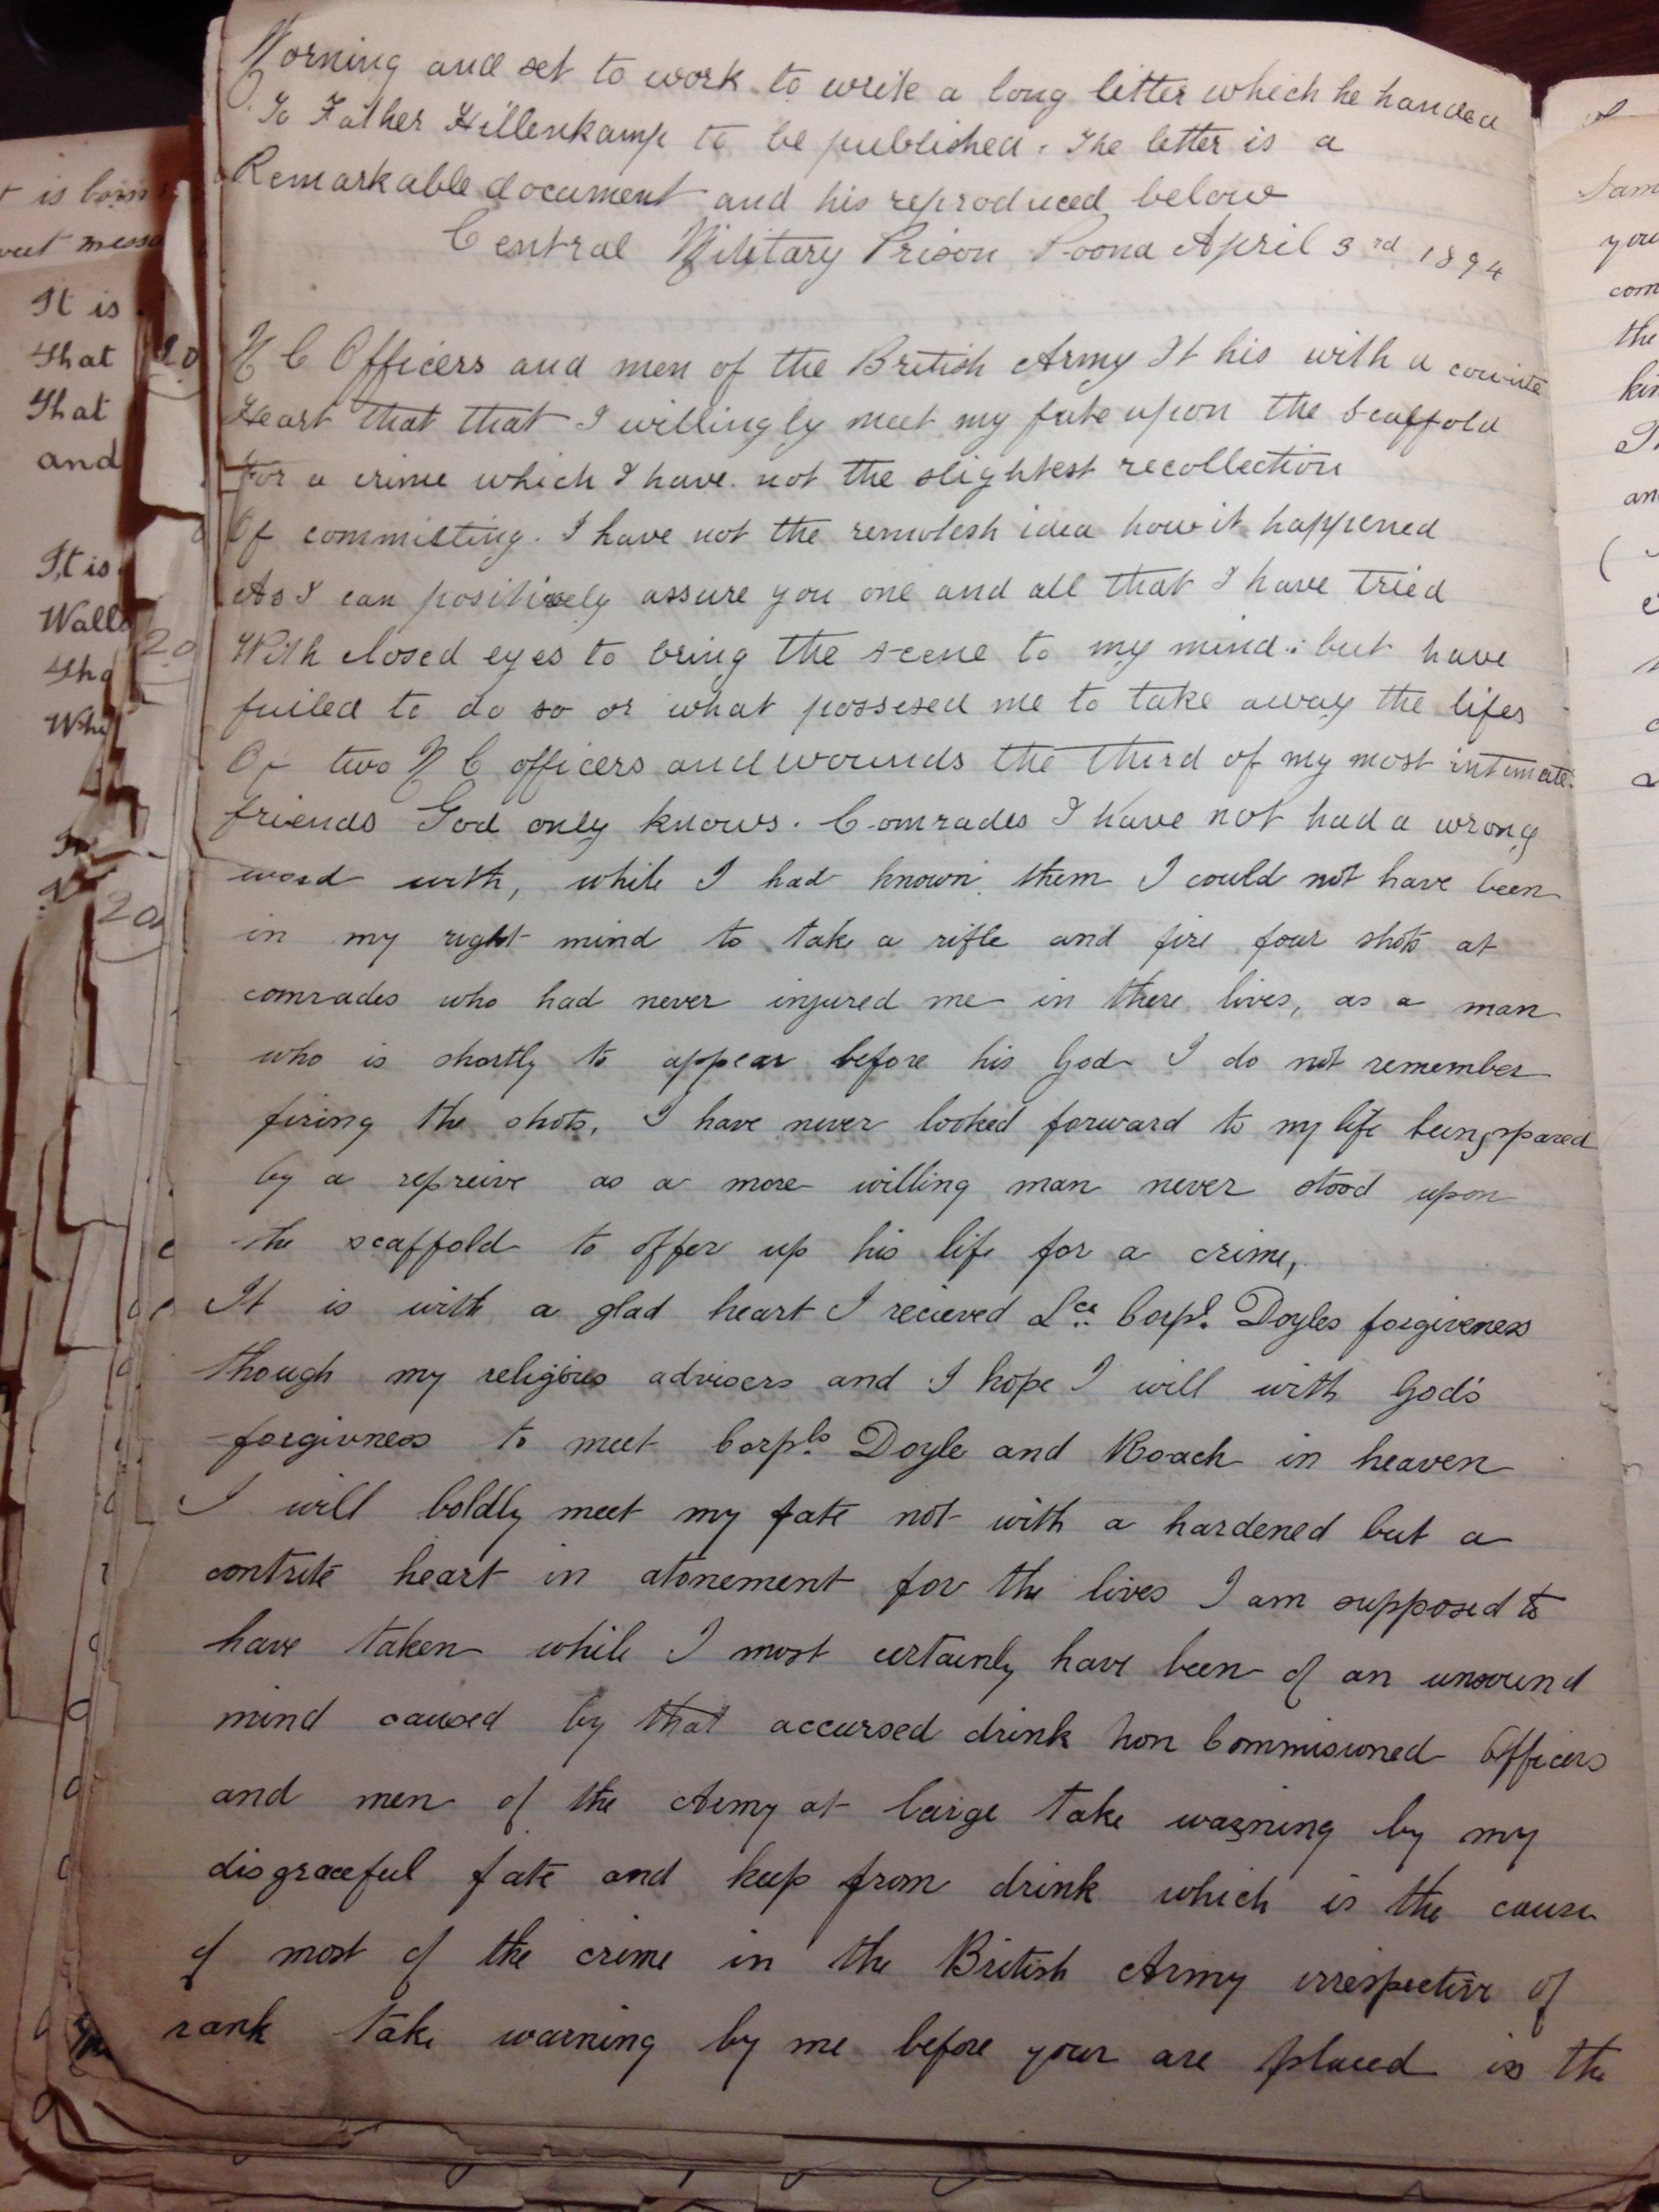 Morning and set to work to write a long letter which he handed
To Father Hillenkamp to be published. The letter is a
Remarkable document and his reproduced below
Central Military Prison Poona April 3rd 1894
N C Officers and men of the British Army It his with a
Heart that that I willingly meet my fate upon the Scaffold
For a crime which I have not the slightest recollection
Of committing. I have not the remotesh idea how it happened
As I can positively assure you one and all that I have tried
With closed eyes to bring the scene to my mind: but have
failed to do so or what possesed me to take away the lifes
Of two N C officers and wounds the third of my most intimate
friends God only knows. Comrades I have not had a wrong
word with, while I had known them I could not have been
in my right mind to take a rifle and fire four shots at
comrades who had never injured me in there lives, as a man
who is shortly to appear before his God I do not remember
firing the shots, I have never looked forward to my life being spared
by a repreive as a more willing man never stood upon
the scaffold to offer up his life for a crime,
It is with a glad heart I recieved Lce Corpl. Doyles forgiveness
though my religious advisers and I hope I will with God's
forgivness to meet Corpls. Doyle and Roach in heaven
I will boldly meet my fate not with a hardened but a
contrite heart in atonement for the lives I am supposed to
have taken while I most certainly have been of an unsound
mind caused by that accursed drink Non Commisioned Officers
and men of the Army at large take warning by my
disgraceful fate and keep from drink which is the cause
of most of the crime in the British Army irrespective of
rank take warning by me before your are placed in the
It is
That
That
and
It is
Walls
20
20
20